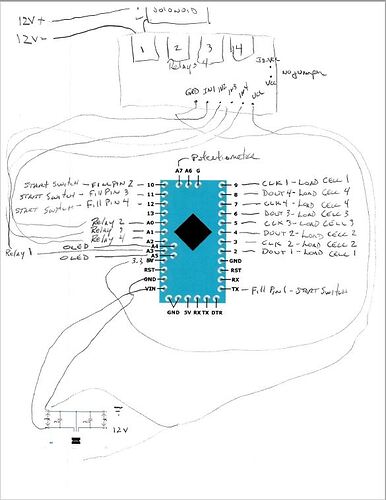 SOLONOID
12V+
12V-
1 2 3 4
Relays 4
JD-VCC
VCC
No Jumper
GND IN1 IN2 IN3 IN4 VCC
Potentiometer
A7 A6 G
START SWITCH - Fill PIN 2 10
START SWITCH - Fill PIN 3 11
START SWITCH - Fill PIN 4 12
13
Relay 2 A0
Relay 3 A1
Relay 4 A2
Relay 1
OLED A4
OLED A5
3.3
RST
GND
VIN
9 CLK 1 - LOAD CELL 1
8 DOUT 4 - LOAD CELL 4
7 CLK 4 - LOAD CELL 4
6 DOUT 3 - LOAD CELL 3
5 CLK 3 - LOAD CELL 3
4 DOUT 2 - LOAD CELL 2
3 CLK 2 - LOAD CELL 2
2 DOUT 1 - LOAD CELL 1
GND
RST
RX
TX Fill PIN 1 - START SWITCH
GND 5V RX TX DTR
12V